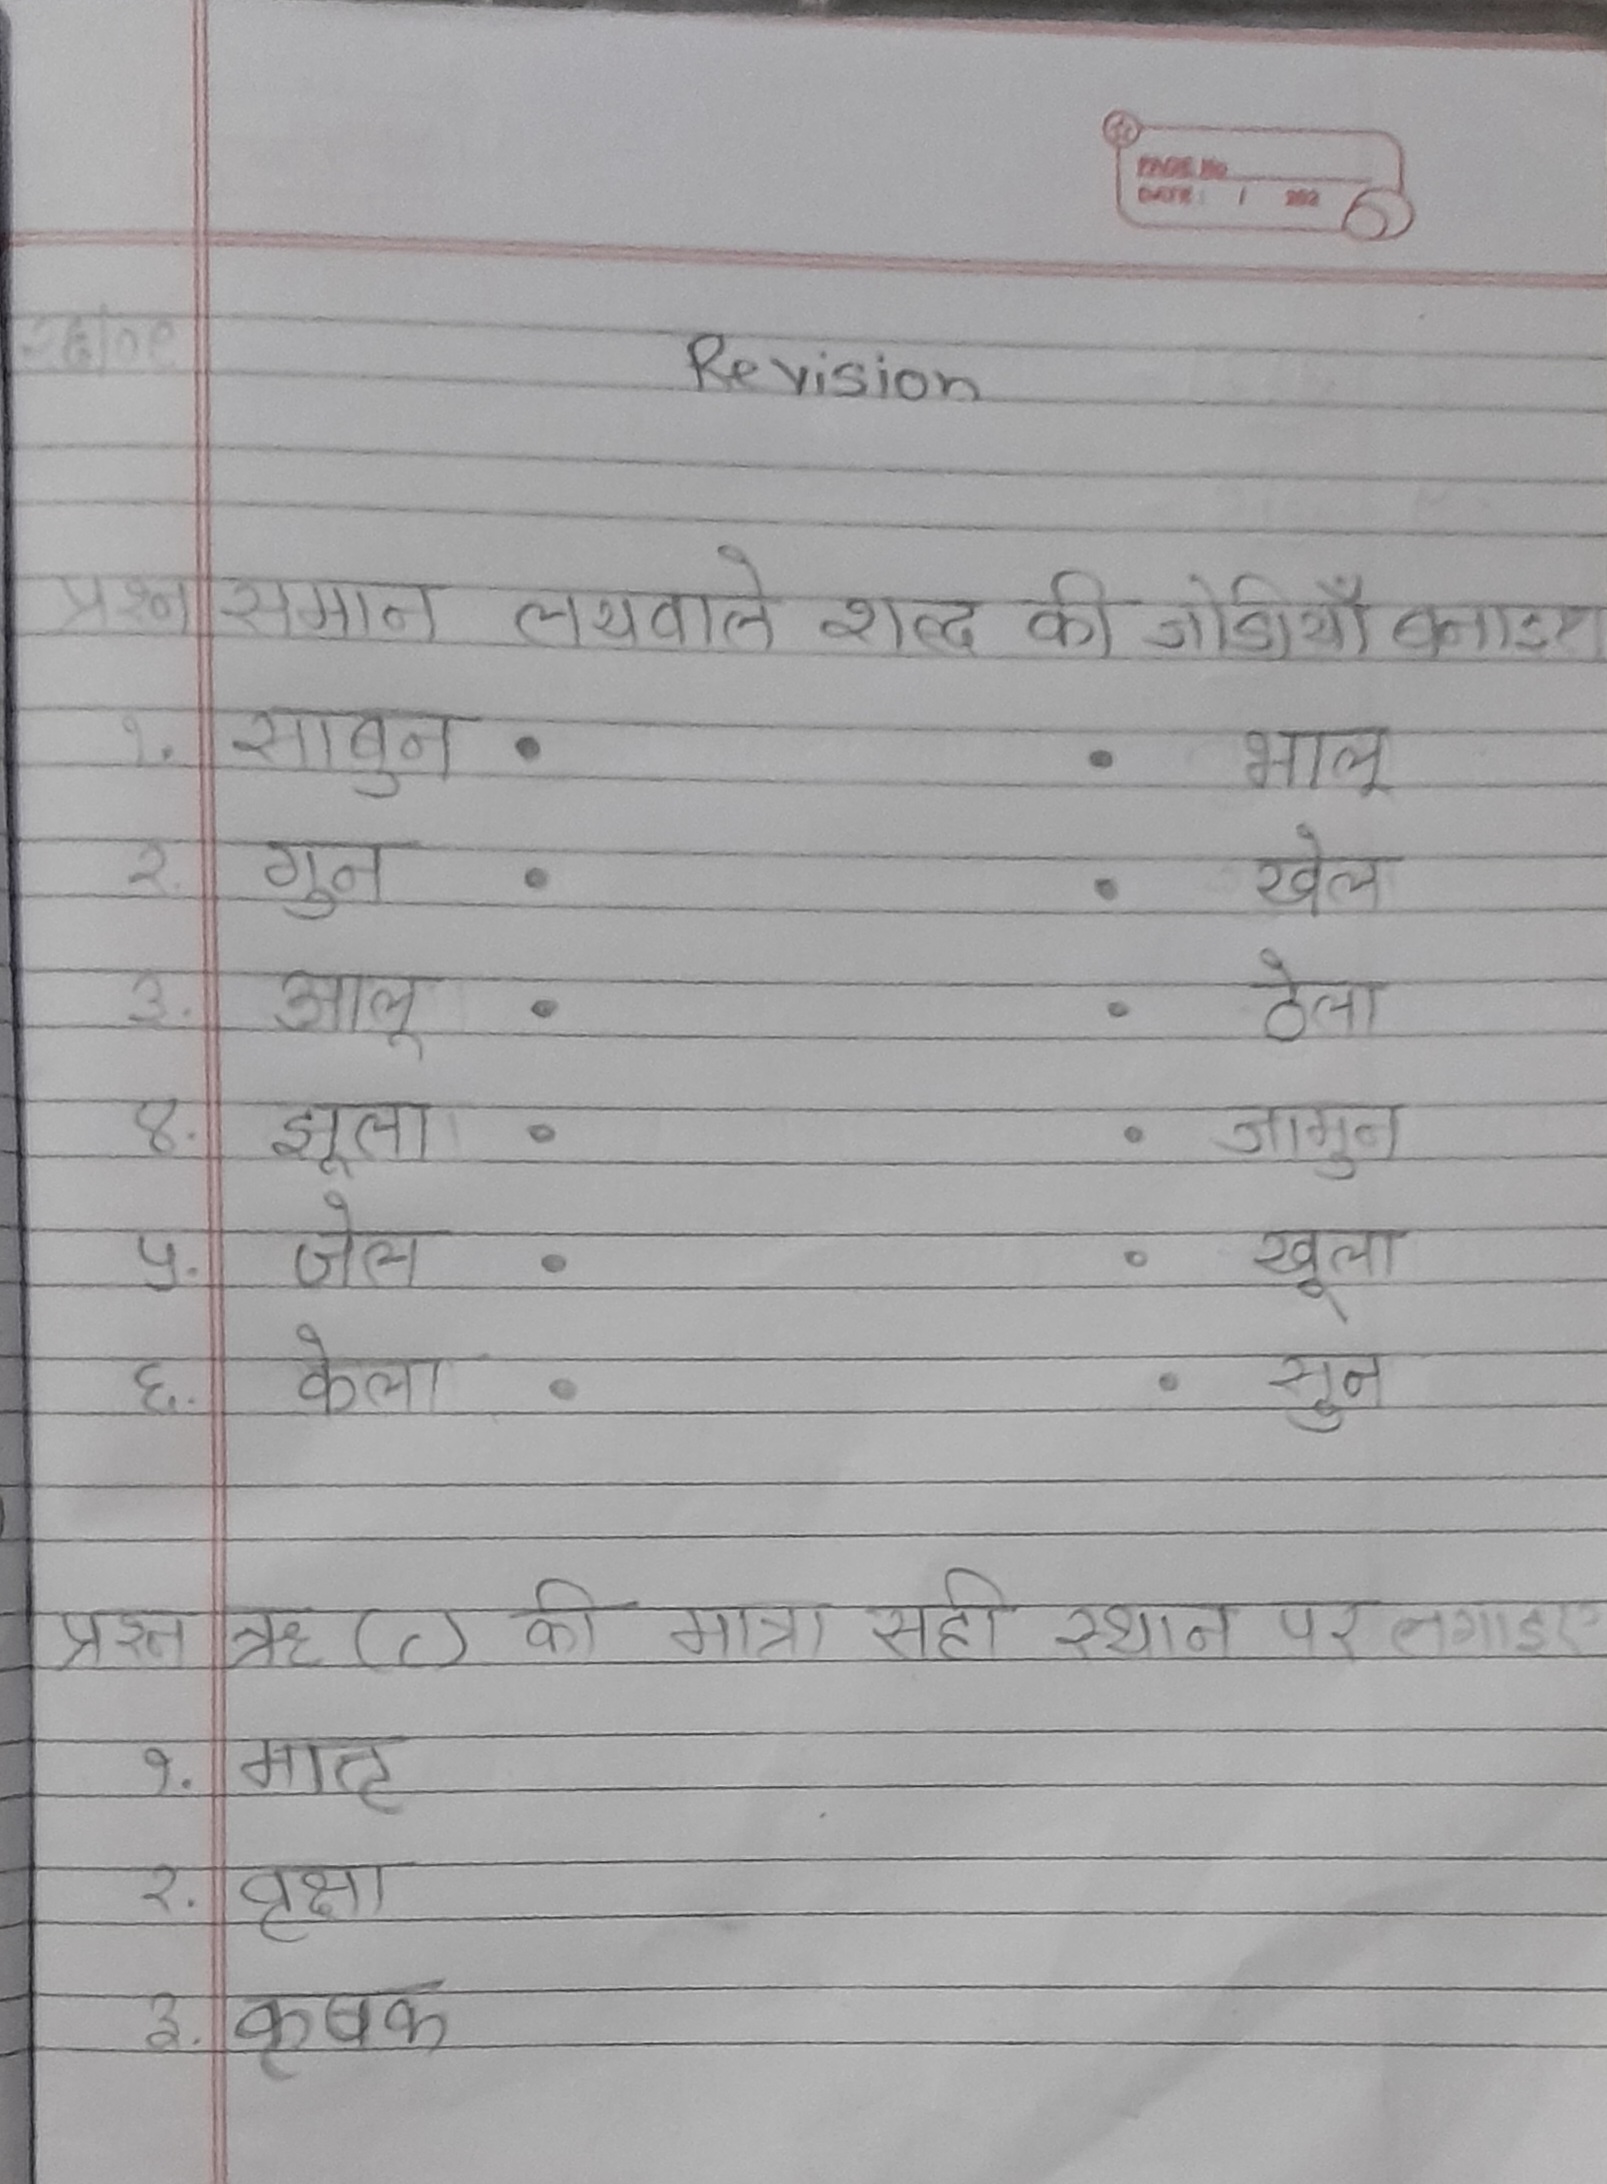 PAGE No
DATE: / 202
Revision
प्रश्न समान लयवाले शब्द की जोडीयाँ बनाइए
१. साबुन • • भालू
२. गुन • • खेल
३. आलू • • ठेला
४. झूला • • जामुन
५. जेल • • खूला
६. केला • • सुन
प्रश्न ऋ (ृ) की मात्रा सही स्थान पर लगाइए
१. मातृ
२. वृक्षा
३. कृषक